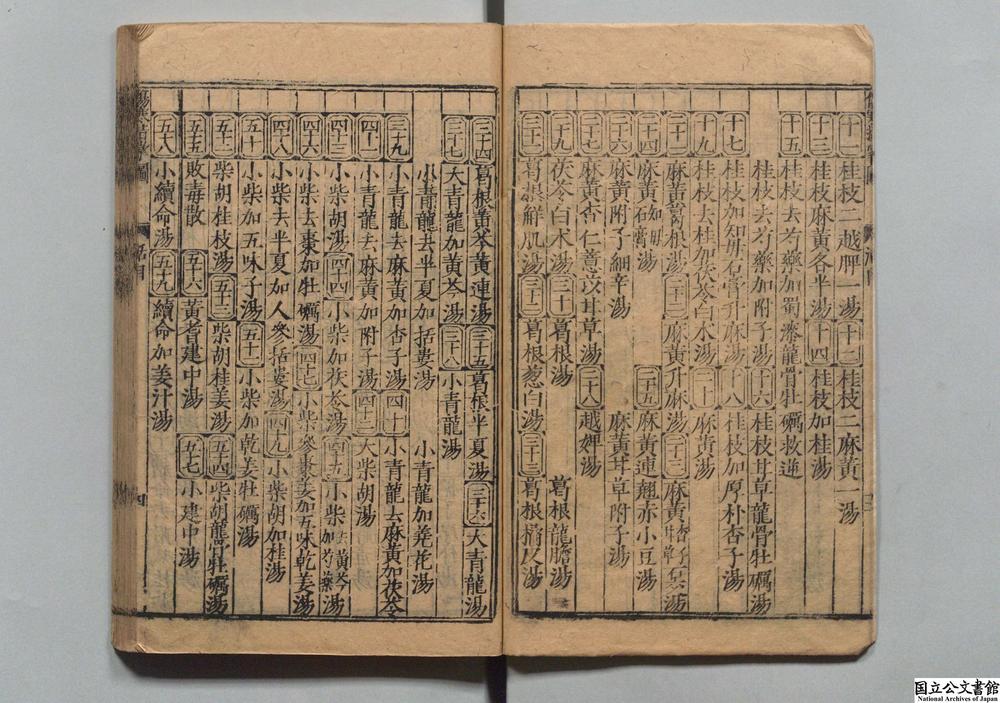 十一 桂枝二越脾一湯 十二 桂枝二麻黃一湯
十三 桂枝麻黃各半湯 十四 桂枝加桂湯
十五 桂枝去芍藥加蜀漆龍骨牡礪救逆
桂枝去芍藥加附子湯 十六 桂枝甘草龍骨牡礪湯
十七 桂枝加知母石膏升麻湯 十八 桂枝加厚朴杏子湯
十九 桂枝去桂加茯苓白朮湯 二十 麻黃湯
二十一 麻黃葛根湯 二十二 麻黃升麻湯 二十三 麻黃杏子甘草石膏湯
二十四 麻黃知母石膏湯 二十五 麻黃連翹赤小豆湯
二十六 麻黃附子細辛湯 麻黃甘草附子湯
二十七 麻黃杏仁薏苡甘草湯 二十八 越婢湯
二十九 茯苓白朮湯 三十 葛根湯 葛根龍膽湯
三十一 葛根解肌湯 三十二 葛根葱白湯 三十三 葛根橘皮湯
三十四 葛根黃芩黃連湯 三十五 葛根半夏湯 三十六 大青龍湯
三十七 大青龍加黃芩湯 三十八 小青龍湯
小青龍去半夏加括蔞湯 小青龍加蕘花湯
三十九 小青龍去麻黃加杏子湯 四十 小青龍去麻黃加茯苓
四十一 小青龍去麻黃加附子湯 四十二 大柴胡湯
四十三 小柴胡湯 四十四 小柴加茯苓湯 四十五 小柴去黃芩加芍藥湯
四十六 小柴去棗加牡礪湯 四十七 小柴去參棗姜加五味乾姜湯
四十八 小柴去半夏加人參括蔞湯 四十九 小柴胡加桂湯
五十 小柴加五味子湯 五十一 小柴加乾姜牡礪湯
五十二 柴胡桂枝湯 五十三 柴胡桂姜湯 五十四 柴胡龍骨牡礪湯
五十五 敗毒散 五十六 黃耆建中湯 五十七 小建中湯
五十八 小續命湯 五十九 續命加姜汁湯
目
四
国立公文書館
National Archives of Japan